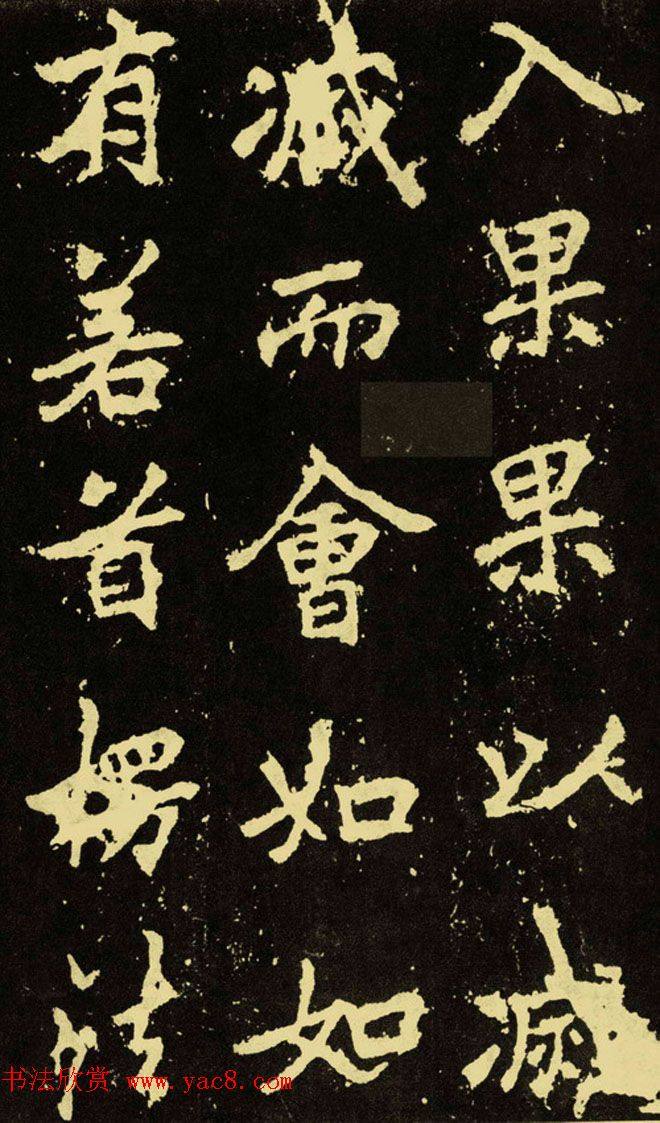 入果果以滅
滅而會如如
有若首楞法
书法欣赏 www.yac8.com